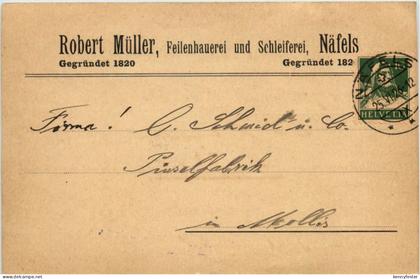 Robert Müller, Feilenhauerei und Schleiferei, Näfels
Gegründet 1820 Gegründet 182
NÄFELS
25.
HELVETIA
Firma! C. Schmid u. Co.
Pinselfabrik
in Mollis
bennyfestar